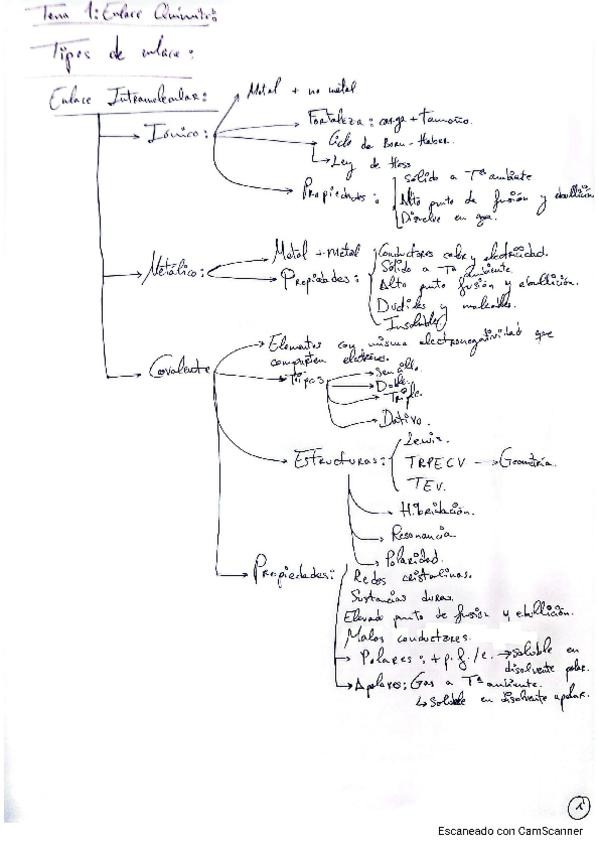 Tema 1: Enlace Químico
Tipos de enlace:
Enlace Intramolecular:
Iónico:
Metal + no metal
Fortaleza: carga + tamaño.
Ciclo de Born-Haber.
Ley de Hess
Propiedades:
Sólido a Tª ambiente
Alto punto de fusión y ebullición
Disuelve en agua.
Metálico:
Metal + metal
Propiedades:
Conductores calor y electricidad.
Sólido a Tª ambiente.
Alto punto fusión y ebullición.
Dúctiles y maleables.
Insolubles
Covalente
Elementos con misma electronegatividad que
comparten electrones.
Tipos
Sencillo.
Doble.
Triple.
Dativo.
Estructuras:
Lewis.
TRPECV → Geometría.
TEV.
Hibridación.
Resonancia
Polaridad.
Propiedades:
Redes cristalinas.
Sustancias duras.
Elevado punto de fusión y ebullición.
Malos conductores.
Polares: + p.f./e. → soluble en
disolvente polar.
Apolares: Gas a Tª ambiente.
↳ Soluble en disolvente apolar.
1
Escaneado con CamScanner